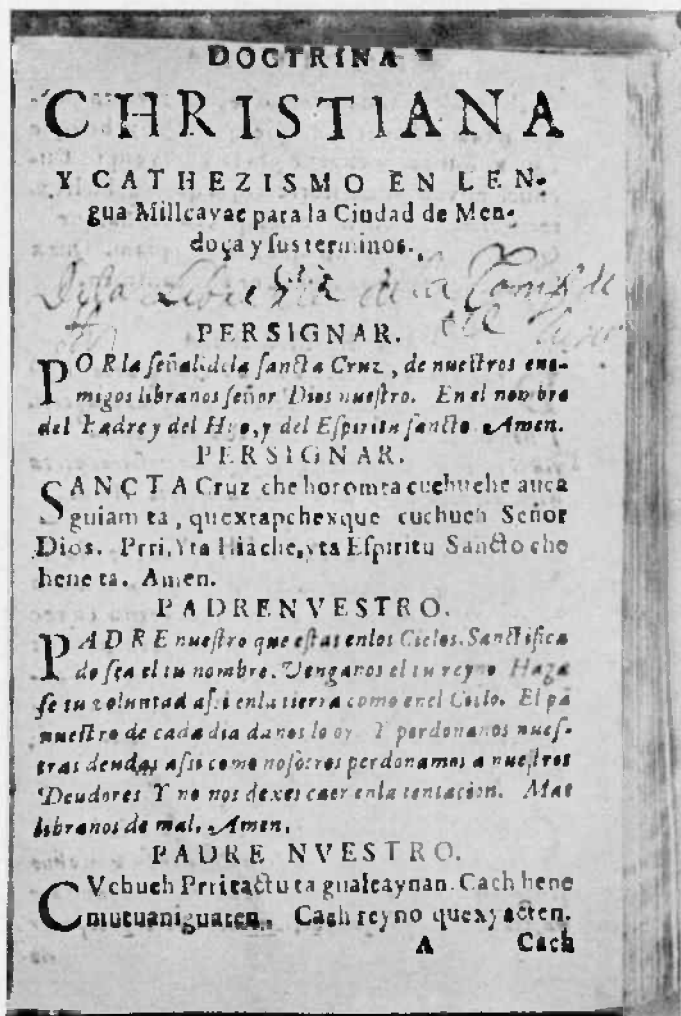 DOCTRINA
CHRISTIANA
Y CATHEZISMO EN LEN-
gua Millcayac para la Ciudad de Men-
doça y sus terminos.
Libreria de la
PERSIGNAR.
POR la señal de la sancta Cruz, de nuestros ene-
migos libranos señor Dios nuestro. En el nombre
del Padre y del Hijo, y del Espiritu sancto Amen.
PERSIGNAR.
SANCTA Cruz che horomta cuchuche auca
guiam ta, quextapchexque cuchuch Señor
Dios. Prri, Yta Hiache, yta Espiritu Sancto che
hene ta. Amen.
PADRENVESTRO.
PADRE nuestro que estas enlos Cielos. Sanctifica
do sea el tu nombre. Venganos el tu reyno Haga
se tu voluntad assi enla tierra como enel Cielo. El pã
nuestro de cada dia danos lo oy Y perdonanos nues-
tras deudas, assi como nosotros perdonamos a nuestros
Deudores Y no nos dexes caer enla tentacion. Mas
libranos de mal. Amen.
PADRE NVESTRO.
CVchuch Prritactu ta gualtaynan. Cach hene
mutuaniguaten. Cach reyno quexyacten.
A Cach